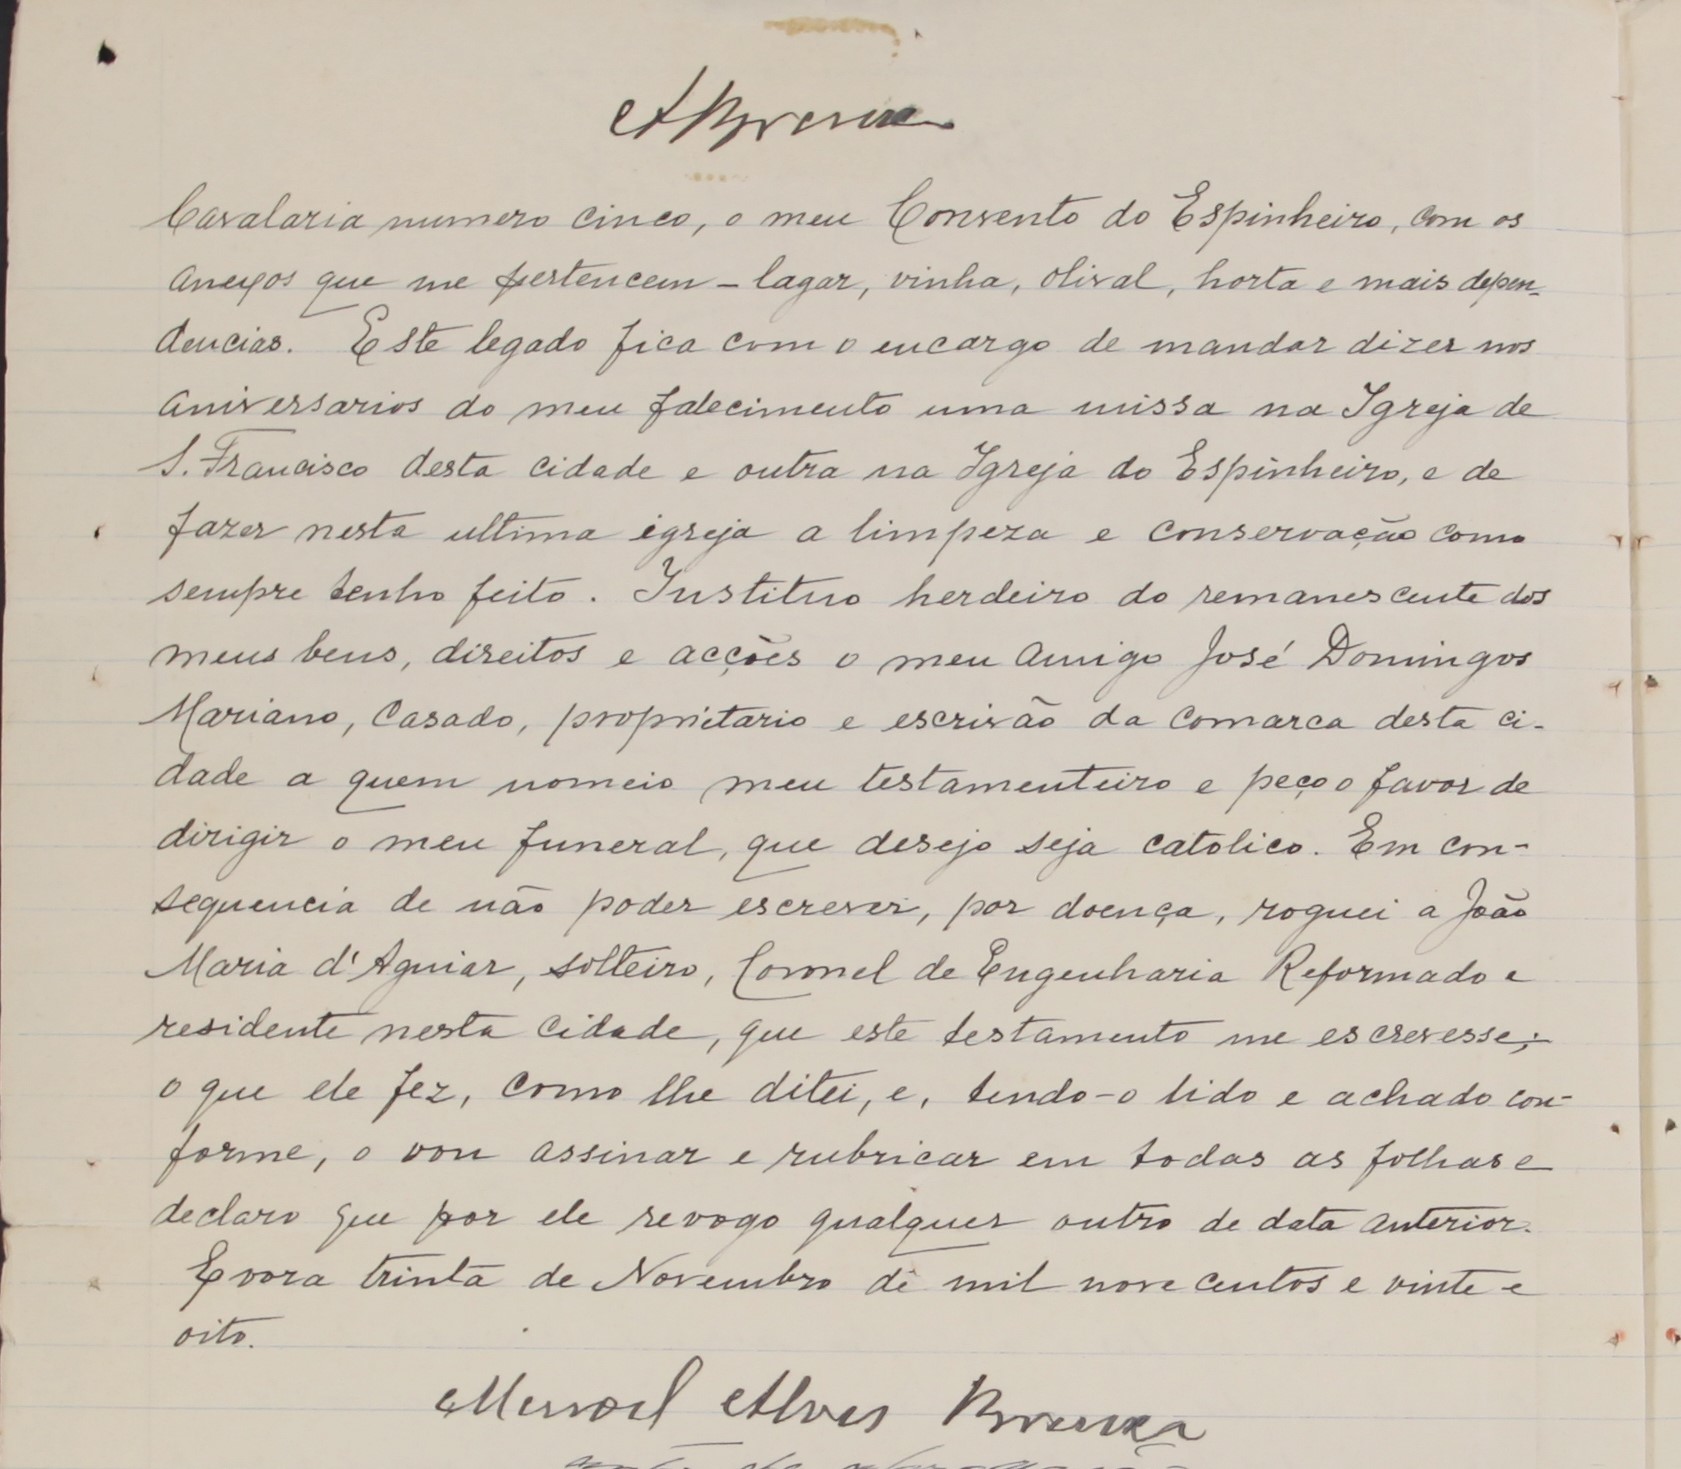 Cavalaria numero cinco, o meu Convento do Espinheiro, com os
anexos que me pertencem – lagar, vinha, olival, horta e mais depen-
dencias. Este legado fica com o encargo de mandar dizer nos
aniversarios do meu falecimento uma missa na Igreja de
S. Francisco desta cidade e outra na Igreja do Espinheiro, e de
fazer nesta ultima igreja a limpeza e conservação como
sempre tenho feito. Instituo herdeiro do remanescente dos
meus bens, direitos e acções o meu amigo José Domingos
Mariano, casado, proprietario e escrivão da comarca desta ci-
dade a quem nomeio meu testamenteiro e peço o favor de
dirigir o meu funeral, que desejo seja catolico. Em con-
sequencia de não poder escrever, por doença, roguei a João
Maria d'Aguiar, solteiro, Coronel de Engenharia Reformado e
residente nesta cidade, que este testamento me escrevesse;
o que ele fez, como lhe ditei, e, tendo-o lido e achado con-
forme, o vou assinar e rubricar em todas as folhas e
declaro que por ele revogo qualquer outro de data anterior.
Evora trinta de Novembro de mil nove centos e vinte e
oito.
Manoel Alves